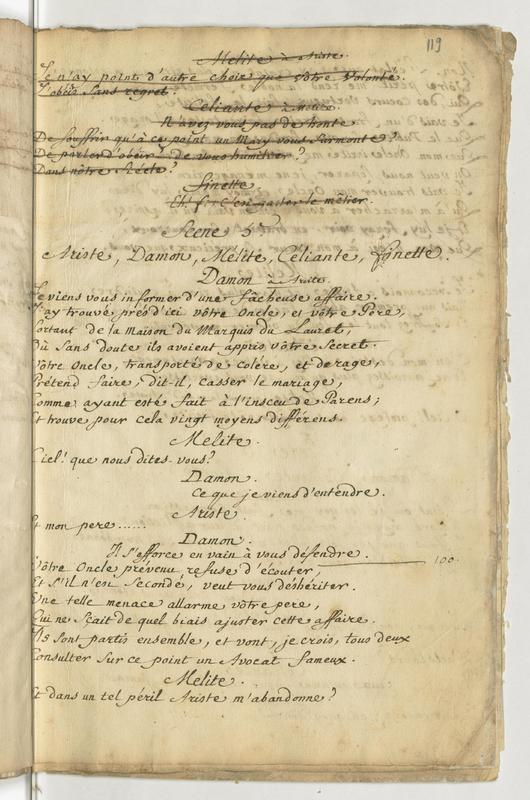 119
Melite à Ariste.
Je n'ay point d'autre choix que vôtre volonté.
J'obéis sans regret.
Céliante à Melite.
N'avez vous pas de honte
De souffrir qu'à ce point un Mary vous surmonte?
De parler d'obeir? de vous humilier?
Dans nôtre Siécle?
Finette.
Eh! fi: c'est gaster le mêtier.
Scene 5.e
Ariste, Damon, Melite, Céliante, Finette.
Damon à Ariste.
Je viens vous informer d'une fâcheuse affaire.
J'ay trouvé prés d'ici vôtre Oncle, et vôtre Pére,
Sortant de la maison du Marquis du Lauret,
Où sans doute ils avoient appris vôtre secret.
Vôtre Oncle, transporté de colére, et de rage,
Prétend faire, dit-il, casser le mariage,
Comme ayant esté fait à l'insceu de Parens;
Et trouve pour cela vingt moyens différens.
Melite.
Ciel! que nous dites-vous?
Damon.
Ce que je viens d'entendre.
Ariste.
Et mon pere......
Damon.
Il s'efforce en vain à vous défendre.
Vôtre Oncle prévenu refuse d'écouter, 100.
Et s'il n'est secondé, veut vous déshériter.
Une telle menace allarme vôtre pere,
Qui ne sçait de quel biais ajuster cette affaire.
Ils sont partis ensemble, et vont, je crois, tous deux
Consulter sur ce point un Avocat fameux.
Melite.
Et dans un tel péril Ariste m'abandonne?